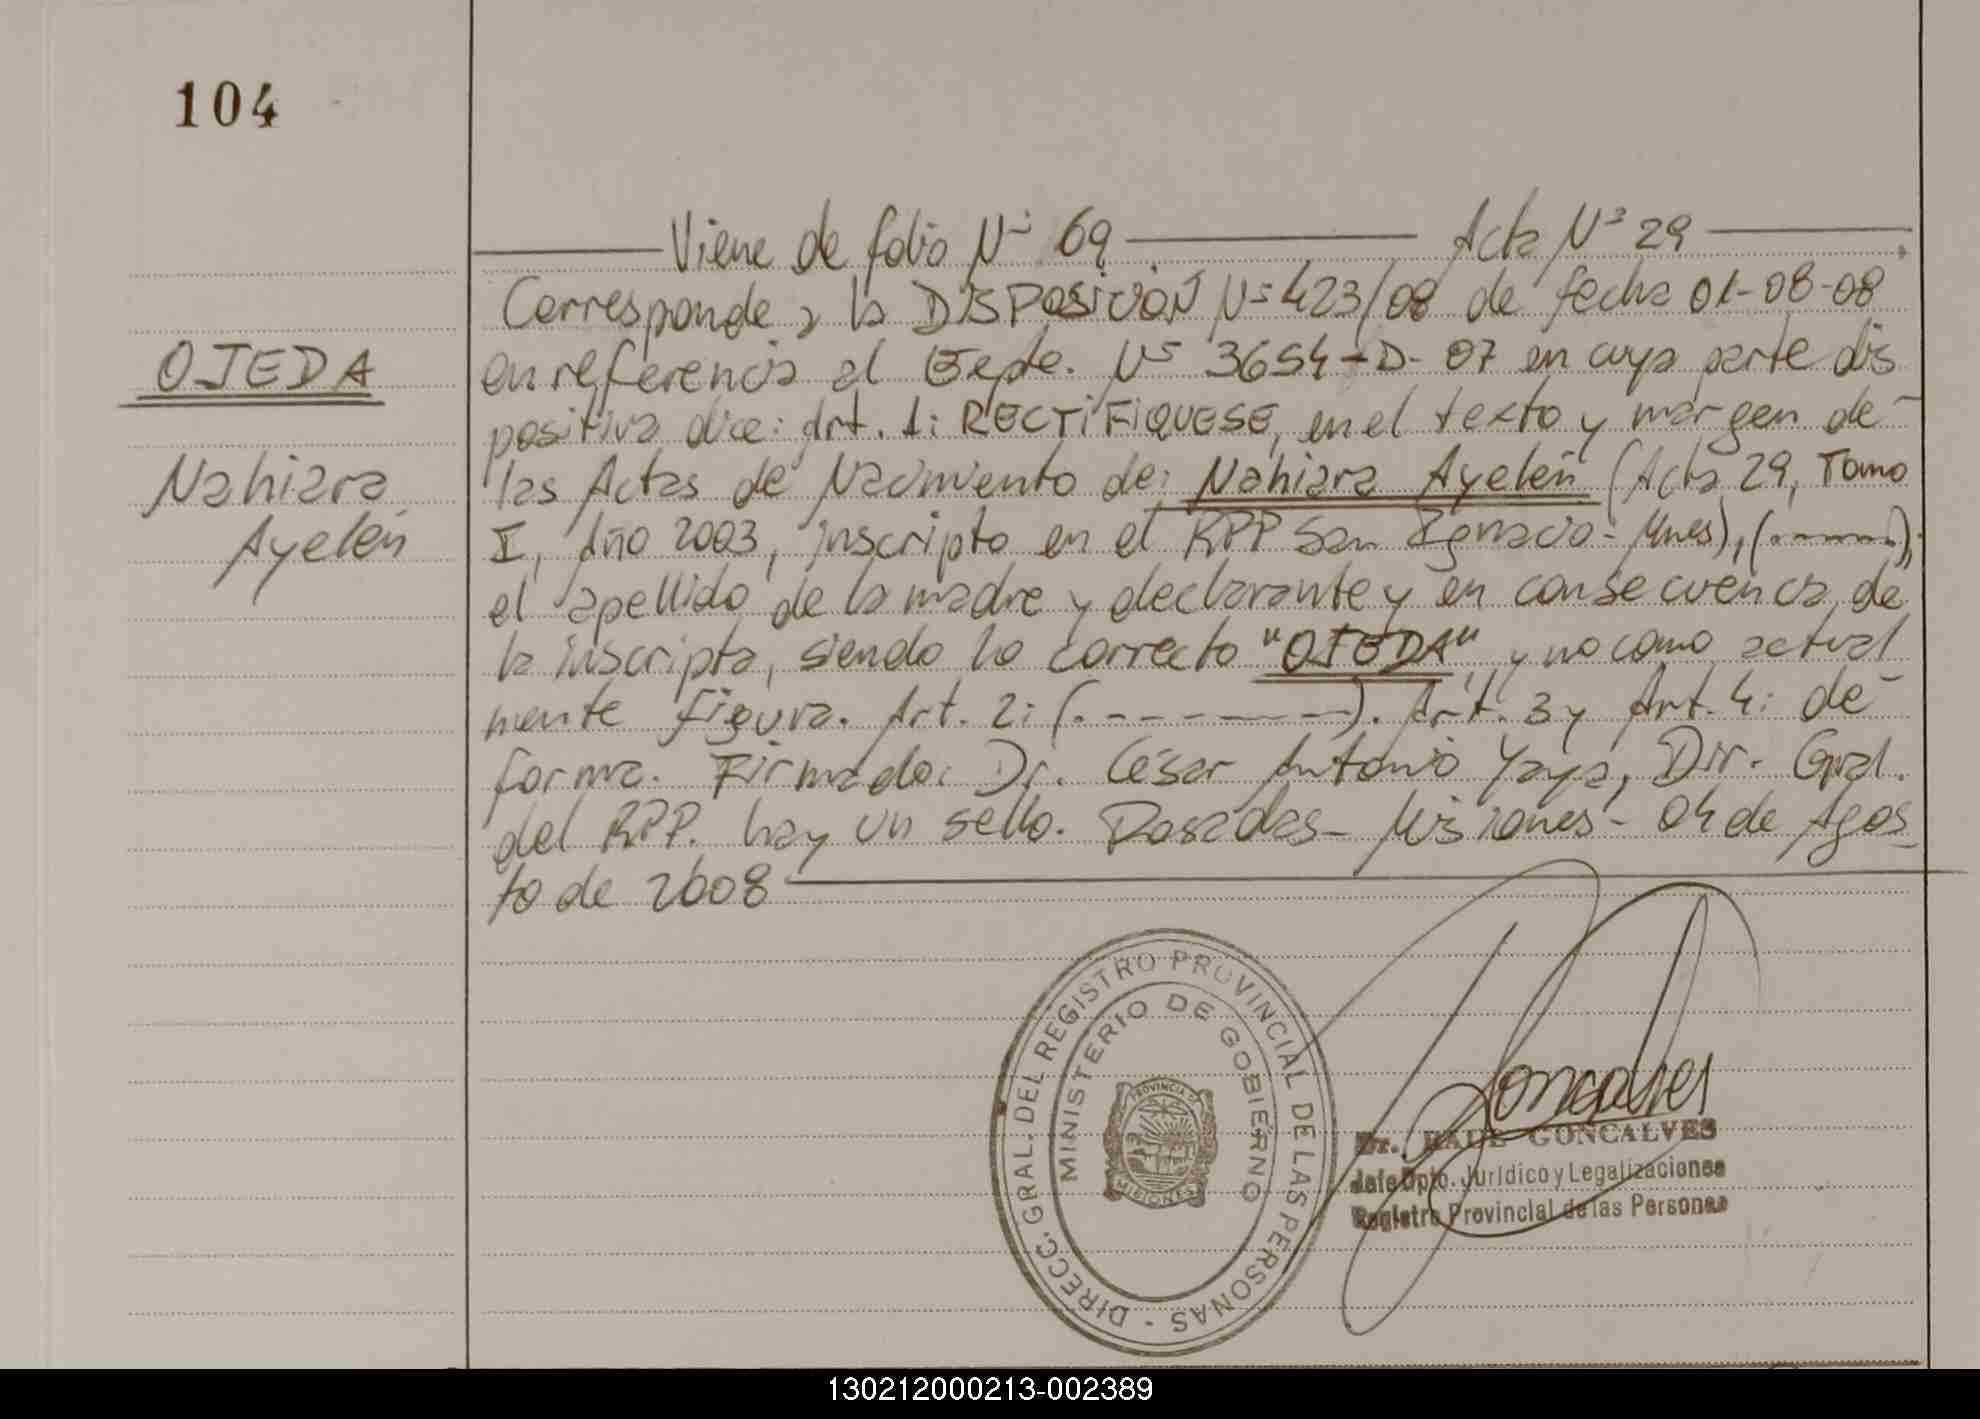 104
Viene de folio Nº 69 Acta Nº 29
Corresponde a la DISPOSICION Nº 423/08 de fecha 01-08-08
OJEDA
en referencia al Expte. Nº 3654-D-07 en cuya parte dis
positiva dice: Art. 1: RECTIFIQUESE, en el texto y margen de
Nahiara
las Actas de Nacimiento de: Nahiara Ayelén (Acta 29, Tomo
Ayelén
I, Año 2003, inscripto en el RPP San Ignacio - Mnes), (.------),
el apellido de la madre y declarante y en consecuencia, de
la inscripta, siendo lo correcto "OJEDA", y no como actual
mente figura. Art. 2: (.-------). Art. 3 y Art. 4: de
forma. Firmado: Dr. César Antonio Yaya, Dir. Gral.
del RPP. hay un sello. Posadas - Misiones - 04 de Agos
to de 2008
DIRECC. GRAL. DEL REGISTRO PROVINCIAL DE LAS PERSONAS -
MINISTERIO DE GOBIERNO
PROVINCIA DE
MISIONES
Goncalves
Dr. RAUL GONCALVES
Jefe Dpto. Jurídico y Legalizaciones
Registro Provincial de las Personas
130212000213-002389